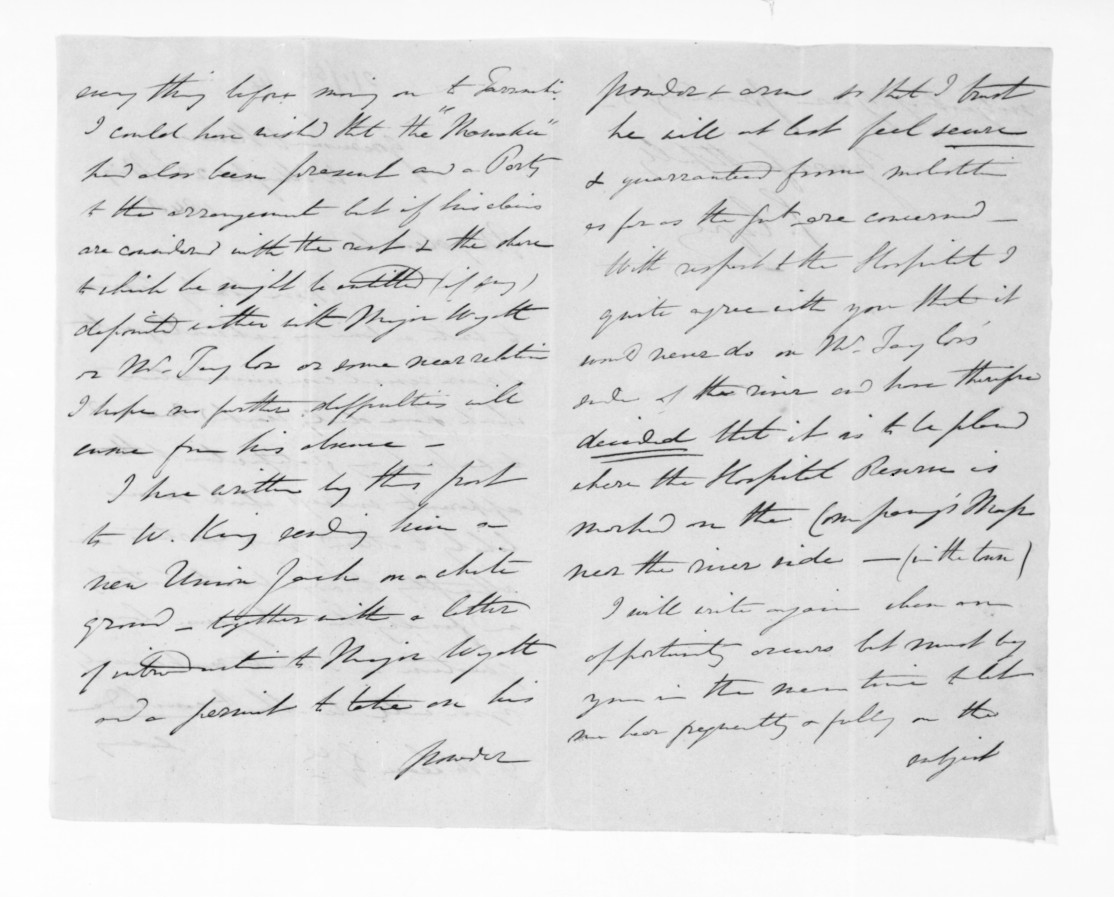 every thing before moving on to Taranaki.
I could have wished that the "Mamaku"
had also been present and a Party
to the arrangement but if his claims
are considered with the rest & the share
to which he might be entitled (if any)
deposited either with Major Wyatt
or Mr. Taylor or some near relation
I hope no further difficulties will
ensue from his absence —
I have written by this post
to W. King sending him a
new Union Jack on a white
ground — together with a letter
of introduction to Major Wyatt
and a permit to take on his
powder
powder & arms so that I trust
he will at last feel secure
& guarranteed from
as far as the are concerned —
With respect to the Hospital I
quite agree with you that it
would never do on Mr. Taylor's
side of the river and have therefore
decided that it is to be placed
where the Hospital Reserve is
marked on the Company's Map
near the river side — (in the town)
I will write again when an
opportunity occurs but must beg
you in the mean time to let
me hear frequently & fully on the
subject